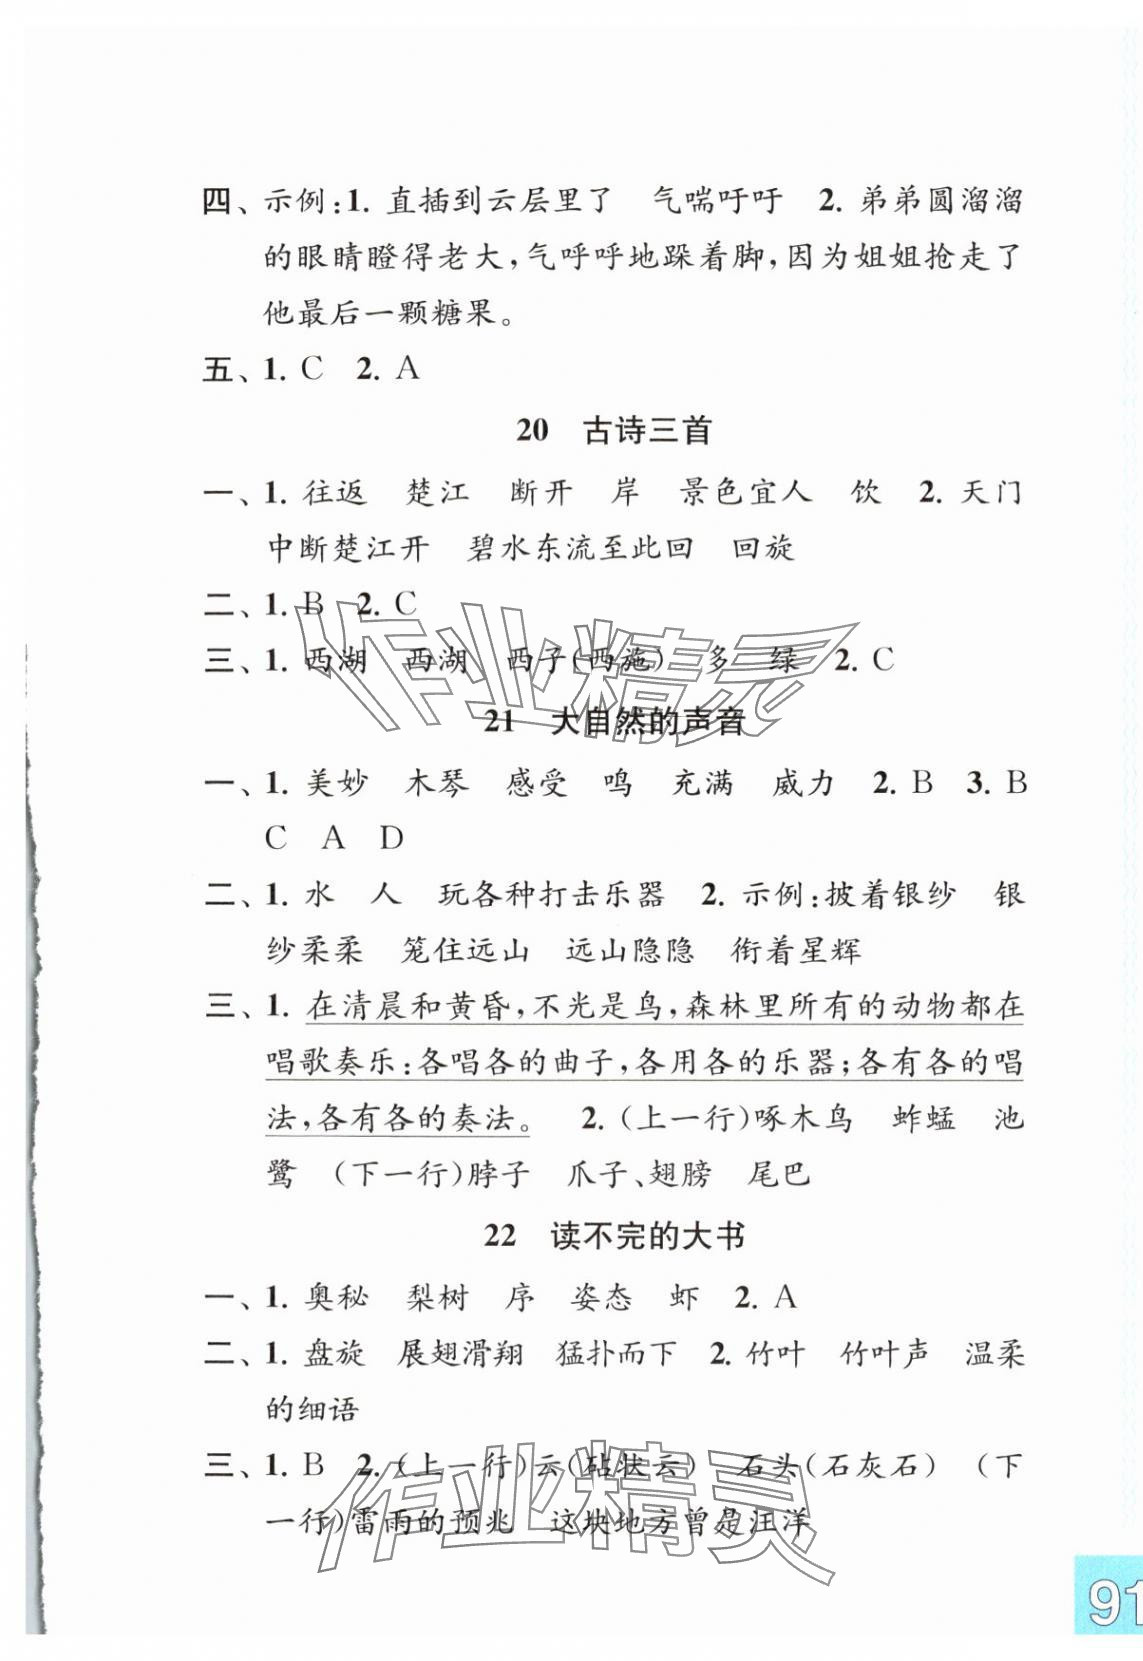 四、示例:1. 直插到云层里了　气喘吁吁　2. 弟弟圆溜溜
的眼睛瞪得老大,气呼呼地跺着脚,因为姐姐抢走了
他最后一颗糖果。
五、1. C　2. A
20　古诗三首
一、1. 往返　楚江　断开　岸　景色宜人　饮　2. 天门
中断楚江开　碧水东流至此回　回旋
二、1. B　2. C
三、1. 西湖　西湖　西子(西施)　多　绿　2. C
21　大自然的声音
一、1. 美妙　木琴　感受　鸣　充满　威力　2. B　3. B
C　A　D
二、1. 水　人　玩各种打击乐器　2. 示例:披着银纱　银
纱柔柔　笼住远山　远山隐隐　衔着星辉
三、1. 在清晨和黄昏,不光是鸟,森林里所有的动物都在
唱歌奏乐:各唱各的曲子,各用各的乐器;各有各的唱
法,各有各的奏法。　2. (上一行)啄木鸟　蚱蜢　池
鹭　(下一行)脖子　爪子、翅膀　尾巴
22　读不完的大书
一、1. 奥秘　梨树　序　姿态　虾　2. A
二、1. 盘旋　展翅滑翔　猛扑而下　2. 竹叶　竹叶声　温柔
的细语
三、1. B　2. (上一行)云(砧状云)　石头(石灰石)　(下
一行)雷雨的预兆　这块地方曾是汪洋
作业精灵
作业精灵
91